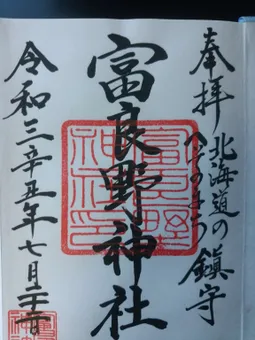 奉拝
北海道の
へそのまち
鎮守
富良野神社
富良野神社印
令和三辛丑年七月